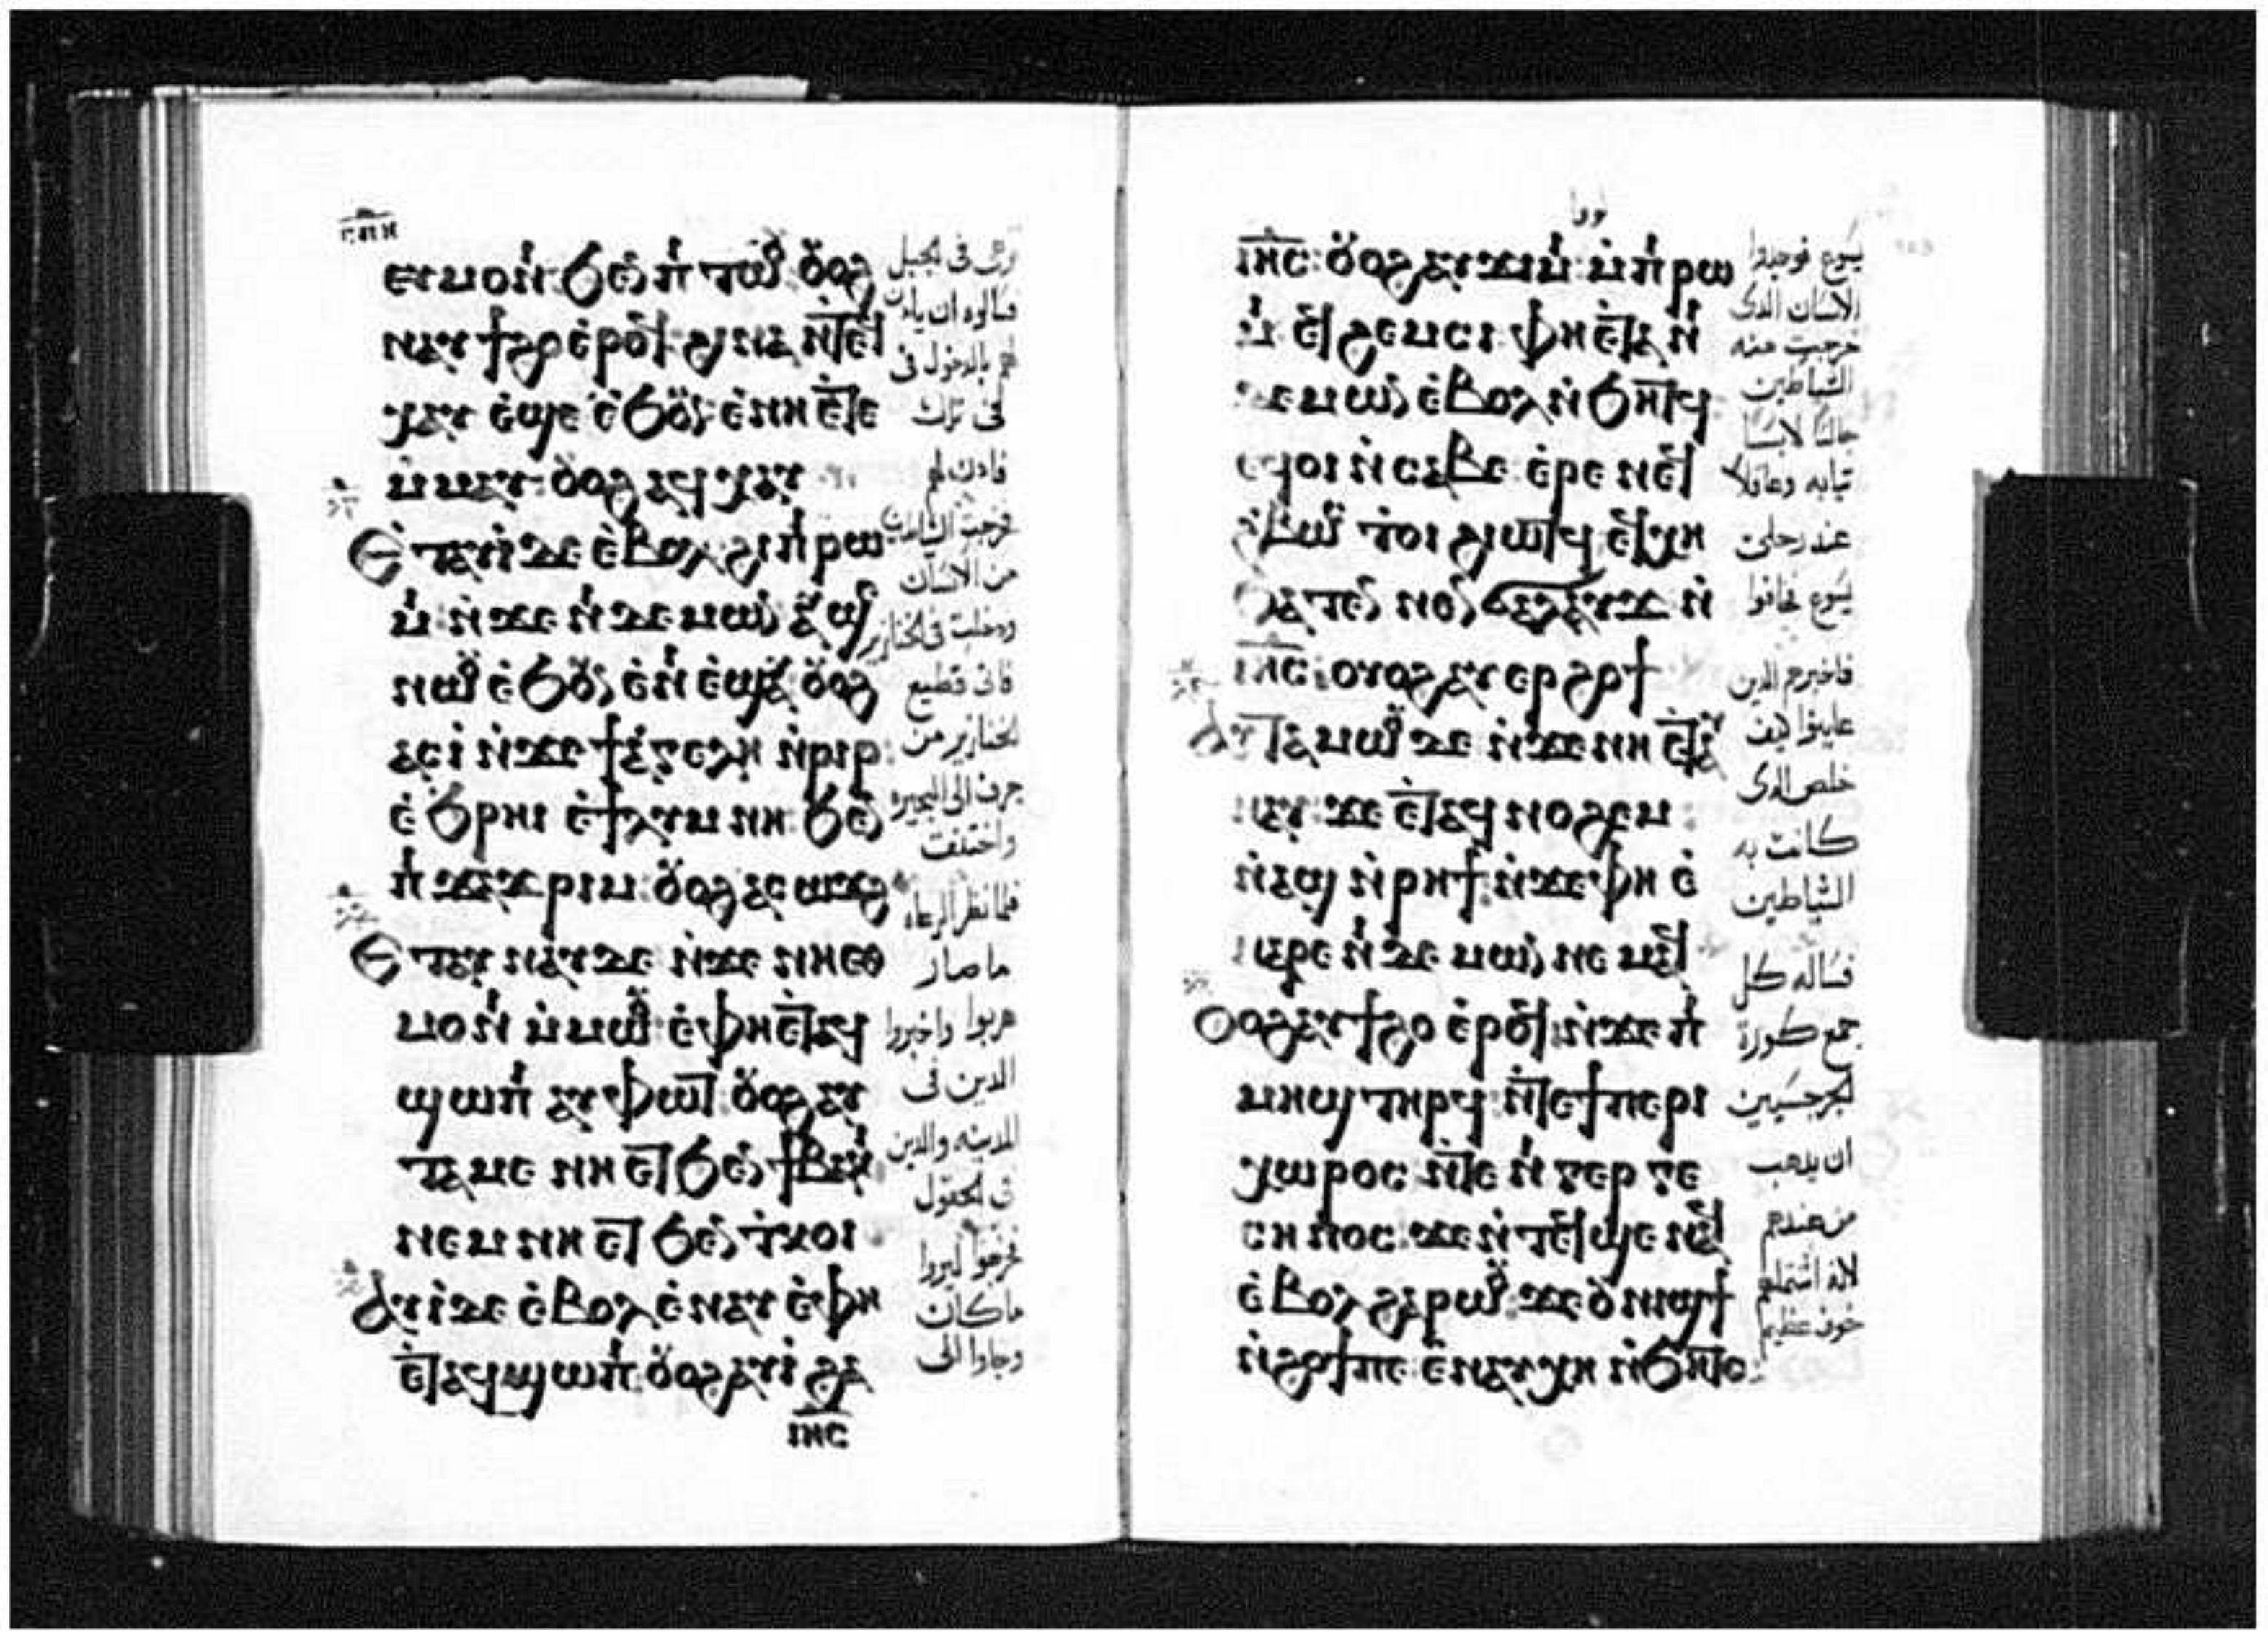 ⲉⲩⲙⲟⲛⲓ ϧⲉⲛ ⲡⲓⲧⲱⲟⲩ ⲟⲩⲟϩ
ⲛⲁⲩϯϩⲟ ⲉⲣⲟϥ ϩⲓⲛⲁ ⲛⲧⲉϥ
ⲭⲁⲩ ⲉϣⲉ ⲉϧⲟⲩⲛ ⲉⲛⲏ ⲉⲧⲉ
ⲙⲙⲁⲩ ⲟⲩⲟϩ ⲁϥⲭⲁⲩ
ⲉⲧⲁⲩⲓ ⲇⲉ ⲉⲃⲟⲗ ϩⲓ ⲡⲓⲣⲱ
ⲙⲓ ⲛϫⲉ ⲛⲓⲇⲉⲙⲱⲛ ⲁⲩϣⲉ
ⲛⲱⲟⲩ ⲉϧⲟⲩⲛ ⲉⲛⲓⲉϣⲁⲩ ⲟⲩⲟϩ
ⲁⲥⲓ ⲛϫⲉ ϯⲁⲅⲉⲗⲏ ⲛⲣⲓⲣ
ⲉϧⲣⲏⲓ ⲉϯⲗⲩⲙⲛⲏ ϧⲉⲛ
ⲡⲓϫⲁϫⲣⲓⲙ ⲟⲩⲟϩ ⲁⲥⲱϫϩ
ⲉⲧⲁⲩⲛⲁⲩ ⲇⲉ ⲛϫⲉ ⲛⲏⲉⲑ
ⲙⲟⲛⲓ ⲙⲙⲱⲟⲩ ⲉⲫⲏⲉⲧⲁϥ
ϣⲱⲡⲓ ⲁⲩⲫⲱⲧ ⲟⲩⲟϩ ⲁⲩ
ⲧⲁⲙⲉ ⲛⲏ ⲉⲧϧⲉⲛ ϯⲃⲁⲕⲓ
ⲛⲉⲙ ⲛⲏ ⲉⲧϧⲉⲛ ⲧⲕⲟⲓ
ⲁⲩⲓ ⲇⲉ ⲉⲃⲟⲗ ⲉⲛⲁⲩ ⲉⲫⲏ
ⲉⲧⲁϥϣⲱⲡⲓ ⲟⲩⲟϩ ⲁⲩⲓ ϩⲁ
ⲓⲏⲥ
فى الجبل
فسالوه ان ياذن
لهم بالدخول فى
فى تلك
فاذن لهم
فخرجت الشياطين
من الانسان
ودخلت فى الخنازير
قطيع
الخنازير من
جرف الى البحيره
واختنقت
فلما نظر الرعاه
ما صار
هربوا واخبروا
الدين فى
المدينه والدين
فى الحقول
فخرجوا ليروا
ما كان
وجاوا الى
ⲓⲏⲥ ⲟⲩⲟϩ ⲁⲩϫⲓⲙⲓ ⲙⲡⲓⲣⲱ
ⲙⲓ ⲉϥϩⲉⲙⲥⲓ ⲫⲏ ⲉⲧⲁ ⲛⲓ
ⲇⲉⲙⲱⲛ ⲉⲃⲟⲗ ⲛϧⲏⲧϥ
ⲉϥⲟⲓ ⲛⲥⲁⲃⲉ ⲉⲣⲉ ⲛⲉϥ
ϩⲃⲱⲥ ⲧⲟⲓ ϩⲓⲱⲧϥ ⲉϥⲭⲏ
ϧⲁⲧⲉⲛ ⲛⲉⲛϭⲁⲗⲁⲩϫ ⲛ
ⲓⲏⲥ ⲟⲩⲟϩ ⲁⲩⲉⲣϩⲟϯ
ⲁⲩⲧⲁⲙⲱⲟⲩ ⲇⲉ ⲛϫⲉ ⲛⲏ ⲉⲧⲁⲩ
ⲛⲁⲩ ϫⲉ ⲉⲧⲁϥⲛⲟϩⲉⲙ
ⲛⲁϣ ⲛⲣⲏϯ ⲛϫⲉ ⲫⲏ ⲉ
ⲛⲁⲣⲉ ⲛⲓⲇⲉⲙⲱⲛ ⲛⲉⲙⲁϥ
ⲟⲩⲟϩ ⲁⲩϯϩⲟ ⲉⲣⲟϥ ⲛϫⲉ ⲡⲓ
ⲙⲏϣ ⲧⲏⲣϥ ⲛⲧⲉ ϯⲡⲉⲣⲓ
ⲭⲱⲣⲟⲥ ⲛⲧⲉ ⲛⲓⲅⲉⲣⲅⲉ
ⲥⲏⲛⲟⲥ ϫⲉ ⲛⲧⲉϥϣⲉ ⲛⲁϥ
ⲉⲃⲟⲗ ϩⲁⲣⲱⲟⲩ ϫⲉ ⲟⲩⲛⲓϣϯ
ⲛϩⲟϯ ⲡⲉ ⲉⲛⲁⲩⲭⲏ ⲛϧⲏⲧⲟⲩ
يسوع فوجدوا
الانسان الدى
خرجت منه
الشياطين
جالسا لابسا
ثيابه وعاقلا
عند رجلى
يسوع فخافوا
فاخبرهم الدين
عاينوا كيف
خلص الدى
كانت به
الشياطين
فساله كل
جمع كورة
الجرجسيين
ان يذهب
من عندهم
لانه اشتملهم
خوف عظيم